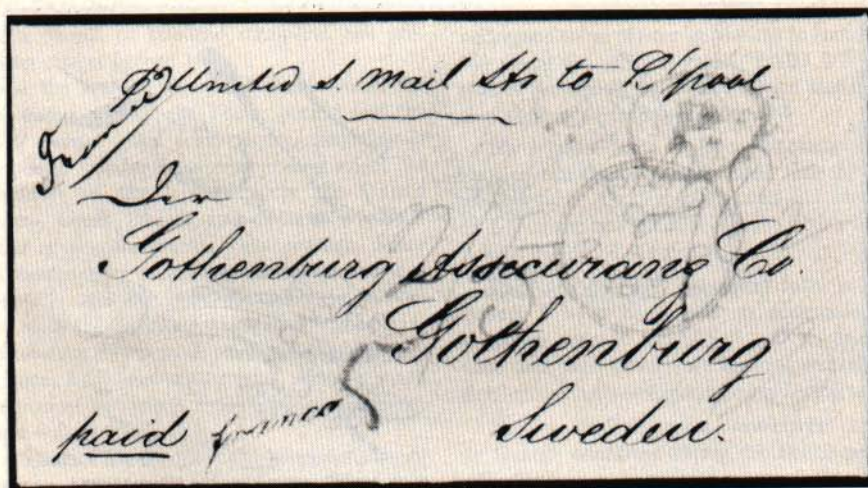 ℔ United S. Mail Str to L'pool
Franco
Der
Gothenburg Assecuranz Co.
Gothenburg
Sweden.
paid franco